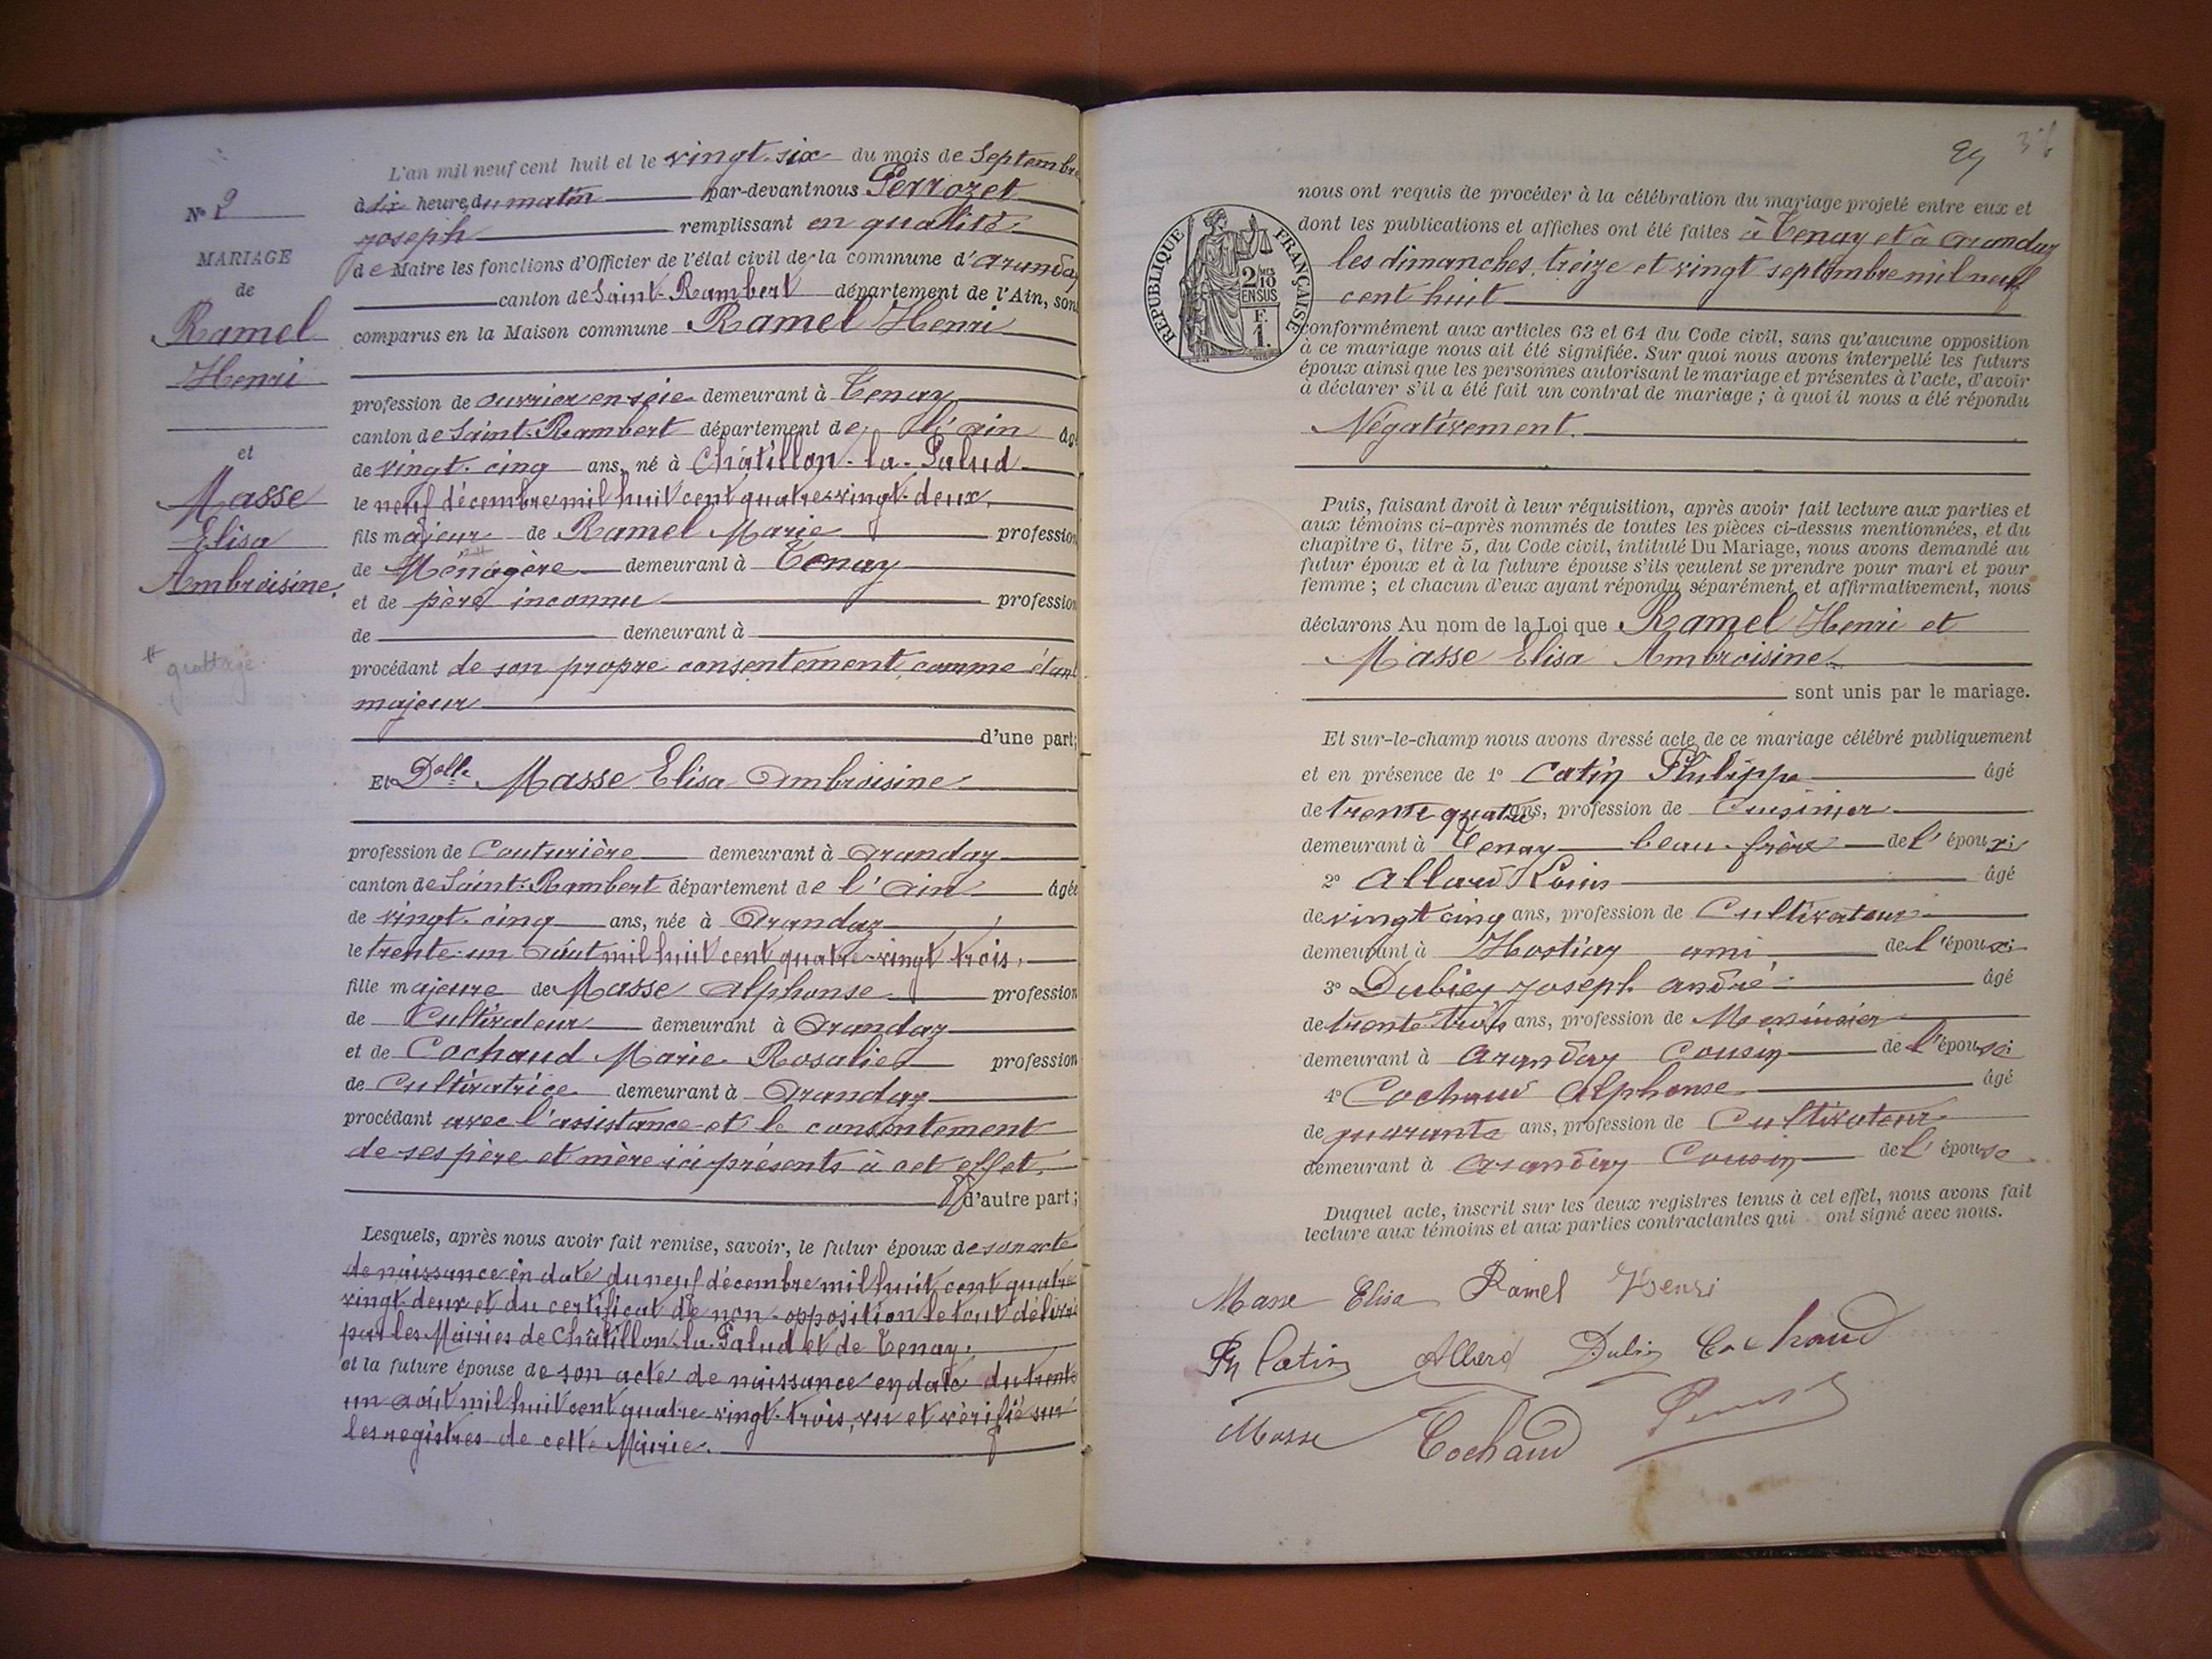 L'an mil neuf cent huit et le vingt-six du mois de Septembre
à dix heures du matin par-devant nous Perrozet
Joseph remplissant en qualité
de Maire les fonctions d'Officier de l'état civil de la commune d'Aranday
canton de Saint-Rambert département de l'Ain, sont
comparus en la Maison commune Ramel Henri
profession de ouvrier en soie demeurant à Tenay
canton de Saint-Rambert département de l'ain âgé
de vingt-cinq ans, né à Châtillon-la-Palud
le neuf décembre mil huit cent quatre-vingt-deux,
fils majeur de Ramel Marie profession
de Ménagère demeurant à Tenay
et de père inconnu profession
de demeurant à
procédant de son propre consentement, comme étant
majeur
d'une part;
Et Delle Masse Elisa Ambroisine
profession de Couturière demeurant à Aranday
canton de Saint-Rambert département de l'Ain âgée
de vingt-cinq ans, née à Aranday
le trente-un Août mil huit cent quatre-vingt trois,
fille majeure de Masse Alphonse profession
de Cultivateur demeurant à Aranday
et de Cochaud Marie Rosalie profession
de Cultivatrice demeurant à Aranday
procédant avec l'assistance et le consentement
de ses père et mère ici présents à cet effet.
d'autre part;
Lesquels, après nous avoir fait remise, savoir, le futur époux de son acte
de naissance en date du neuf décembre mil huit cent quatre
vingt-deux et du certificat de non-opposition le tout délivré
par les Mairies de Châtillon-la-Palud et de Tenay.
et la future épouse de son acte de naissance en date du trente
un août mil huit cent quatre-vingt-trois, vu et vérifié sur
les registres de cette Mairie.
No 9
MARIAGE
de
Ramel
Henri
et
Masse
Elisa
Ambroisine.
# grattage
29
nous ont requis de procéder à la célébration du mariage projeté entre eux et
dont les publications et affiches ont été faites à Tenay et à Aranday
les dimanches, treize et vingt septembre mil neuf
cent huit
conformément aux articles 63 et 64 du Code civil, sans qu'aucune opposition
à ce mariage nous ait été signifiée. Sur quoi nous avons interpellé les futurs
époux ainsi que les personnes autorisant le mariage et présentes à l'acte, d'avoir
à déclarer s'il a été fait un contrat de mariage ; à quoi il nous a été répondu
Négativement.
Puis, faisant droit à leur réquisition, après avoir fait lecture aux parties et
aux témoins ci-après nommés de toutes les pièces ci-dessus mentionnées, et du
chapitre 6, titre 5, du Code civil, intitulé Du Mariage, nous avons demandé au
futur époux et à la future épouse s'ils veulent se prendre pour mari et pour
femme ; et chacun d'eux ayant répondu séparément et affirmativement, nous
déclarons Au nom de la Loi que Ramel Henri et
Masse Elisa Ambroisine
sont unis par le mariage.
Et sur-le-champ nous avons dressé acte de ce mariage célébré publiquement
et en présence de 1° Catin Philippe âgé
de trente quatre ans, profession de Cuisinier
demeurant à Tenay beau-frère de l'époux;
2° Allard Louis âgé
de vingt cinq ans, profession de Cultivateur
demeurant à Hostiaz ami de l'époux;
3° Dubiey Joseph André âgé
de trente trois ans, profession de Menuisier
demeurant à Aranday Cousin de l'épouse;
4° Cochaud Alphonse âgé
de quarante ans, profession de Cultivateur
demeurant à Aranday Cousin de l'épouse
Duquel acte, inscrit sur les deux registres tenus à cet effet, nous avons fait
lecture aux témoins et aux parties contractantes qui ont signé avec nous.
REPUBLIQUE FRANÇAISE
2/10 EN SUS
F. 1.
Masse Elisa Ramel Henri
Ph Catin Allard Dubiey Cochaud
Masse Cochaud